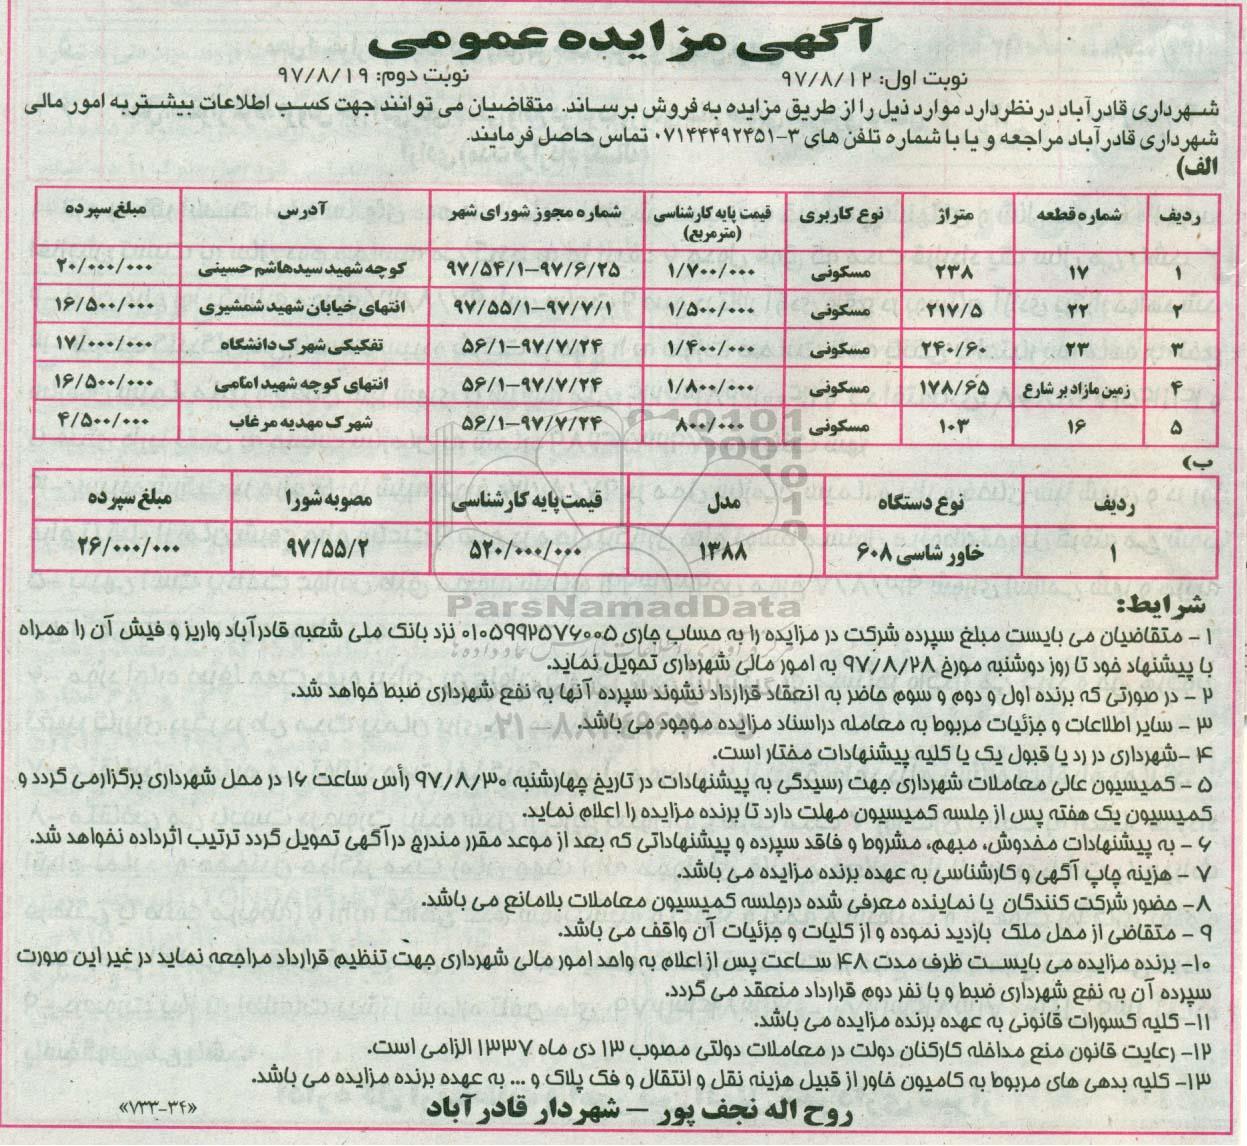 آگهی مزایده عمومی
نوبت اول: ۹۷/۸/۱۲ نوبت دوم: ۹۷/۸/۱۹
شهرداری قادرآباد در نظر دارد موارد ذیل را از طریق مزایده به فروش برساند. متقاضیان می توانند جهت کسب اطلاعات بیشتر به امور مالی
شهرداری قادرآباد مراجعه و یا با شماره تلفن های ۳-۰۷۱۴۴۴۹۲۴۵۱ تماس حاصل فرمایند.
الف)
ردیف شماره قطعه متراژ نوع کاربری قیمت پایه کارشناسی (مترمربع) شماره مجوز شورای شهر آدرس مبلغ سپرده
۱ ۱۷ ۲۳۸ مسکونی ۱/۷۰۰/۰۰۰ ۹۷/۵۴/۱-۹۷/۶/۲۵ کوچه شهید سیدهاشم حسینی ۲۰/۰۰۰/۰۰۰
۲ ۲۲ ۲۱۷/۵ مسکونی ۱/۵۰۰/۰۰۰ ۹۷/۵۵/۱-۹۷/۷/۱ انتهای خیابان شهید شمشیری ۱۶/۵۰۰/۰۰۰
۳ ۲۳ ۲۴۰/۶۰ مسکونی ۱/۴۰۰/۰۰۰ ۵۶/۱-۹۷/۷/۲۴ تفکیکی شهرک دانشگاه ۱۷/۰۰۰/۰۰۰
۴ زمین مازاد بر شارع ۱۷۸/۶۵ مسکونی ۱/۸۰۰/۰۰۰ ۵۶/۱-۹۷/۷/۲۴ انتهای کوچه شهید امامی ۱۶/۵۰۰/۰۰۰
۵ ۱۶ ۱۰۳ مسکونی ۸۰۰/۰۰۰ ۵۶/۱-۹۷/۷/۲۴ شهرک مهدیه مرغاب ۴/۵۰۰/۰۰۰
ب)
ردیف نوع دستگاه مدل قیمت پایه کارشناسی مصوبه شورا مبلغ سپرده
۱ خاور شاسی ۶۰۸ ۱۳۸۸ ۵۲۰/۰۰۰/۰۰۰ ۹۷/۵۵/۲ ۲۶/۰۰۰/۰۰۰
ParsNamadData
شرایط:
۱ - متقاضیان می بایست مبلغ سپرده شرکت در مزایده را به حساب جاری ۰۱۰۵۹۹۲۵۷۶۰۰۵ نزد بانک ملی شعبه قادرآباد واریز و فیش آن را همراه
با پیشنهاد خود تا روز دوشنبه مورخ ۹۷/۸/۲۸ به امور مالی شهرداری تحویل نماید.
۲ - در صورتی که برنده اول و دوم و سوم حاضر به انعقاد قرارداد نشوند سپرده آنها به نفع شهرداری ضبط خواهد شد.
۳ - سایر اطلاعات و جزئیات مربوط به معامله دراسناد مزایده موجود می باشد.
۴ -شهرداری در رد یا قبول یک یا کلیه پیشنهادات مختار است.
۵ - کمیسیون عالی معاملات شهرداری جهت رسیدگی به پیشنهادات در تاریخ چهارشنبه ۹۷/۸/۳۰ رأس ساعت ۱۶ در محل شهرداری برگزارمی گردد و
کمیسیون یک هفته پس از جلسه کمیسیون مهلت دارد تا برنده مزایده را اعلام نماید.
۶ - به پیشنهادات مخدوش، مبهم، مشروط و فاقد سپرده و پیشنهاداتی که بعد از موعد مقرر مندرج درآگهی تحویل گردد ترتیب اثرداده نخواهد شد.
۷ - هزینه چاپ آگهی و کارشناسی به عهده برنده مزایده می باشد.
۸- حضور شرکت کنندگان یا نماینده معرفی شده درجلسه کمیسیون معاملات بلامانع می باشد.
۹ - متقاضی از محل ملک بازدید نموده و از کلیات و جزئیات آن واقف می باشد.
۱۰- برنده مزایده می بایست ظرف مدت ۴۸ ساعت پس از اعلام به واحد امور مالی شهرداری جهت تنظیم قرارداد مراجعه نماید در غیر این صورت
سپرده آن به نفع شهرداری ضبط و با نفر دوم قرارداد منعقد می گردد.
۱۱- کلیه کسورات قانونی به عهده برنده مزایده می باشد.
۱۲- رعایت قانون منع مداخله کارکنان دولت در معاملات دولتی مصوب ۱۳ دی ماه ۱۳۳۷ الزامی است.
۱۳- کلیه بدهی های مربوط به کامیون خاور از قبیل هزینه نقل و انتقال و فک پلاک و ... به عهده برنده مزایده می باشد.
روح اله نجف پور – شهردار قادرآباد
«۷۳۳-۳۴»